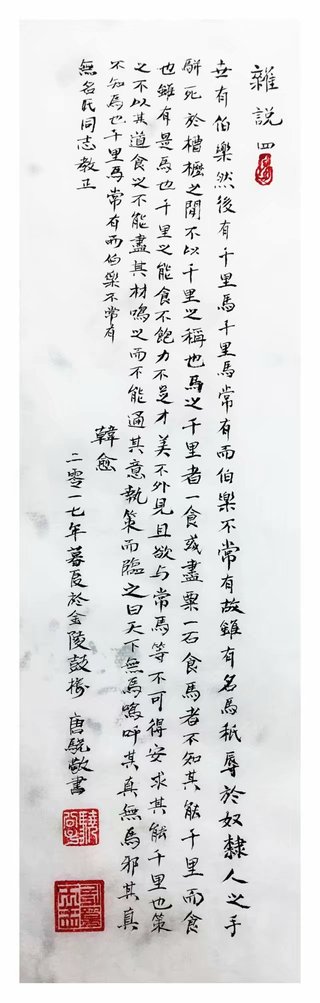 雜說四
世有伯樂然後有千里馬千里馬常有而伯樂不常有故雖有名馬祇辱於奴隸人之手
駢死於槽櫪之間不以千里之稱也馬之千里者一食或盡粟一石食馬者不知其能千里而食
也雖有是馬也千里之能食不飽力不足才美不外見且欲与常馬等不可得安求其能千里也策
之不以其道食之不能盡其材鳴之而不能通其意執策而臨之曰天下無馬嗚呼其真無馬邪其真
不知馬也千里馬常有而伯樂不常有
韓愈
無名氏同志教正
二零一七年暮夏於金陵鼓樓 唐驍敬書